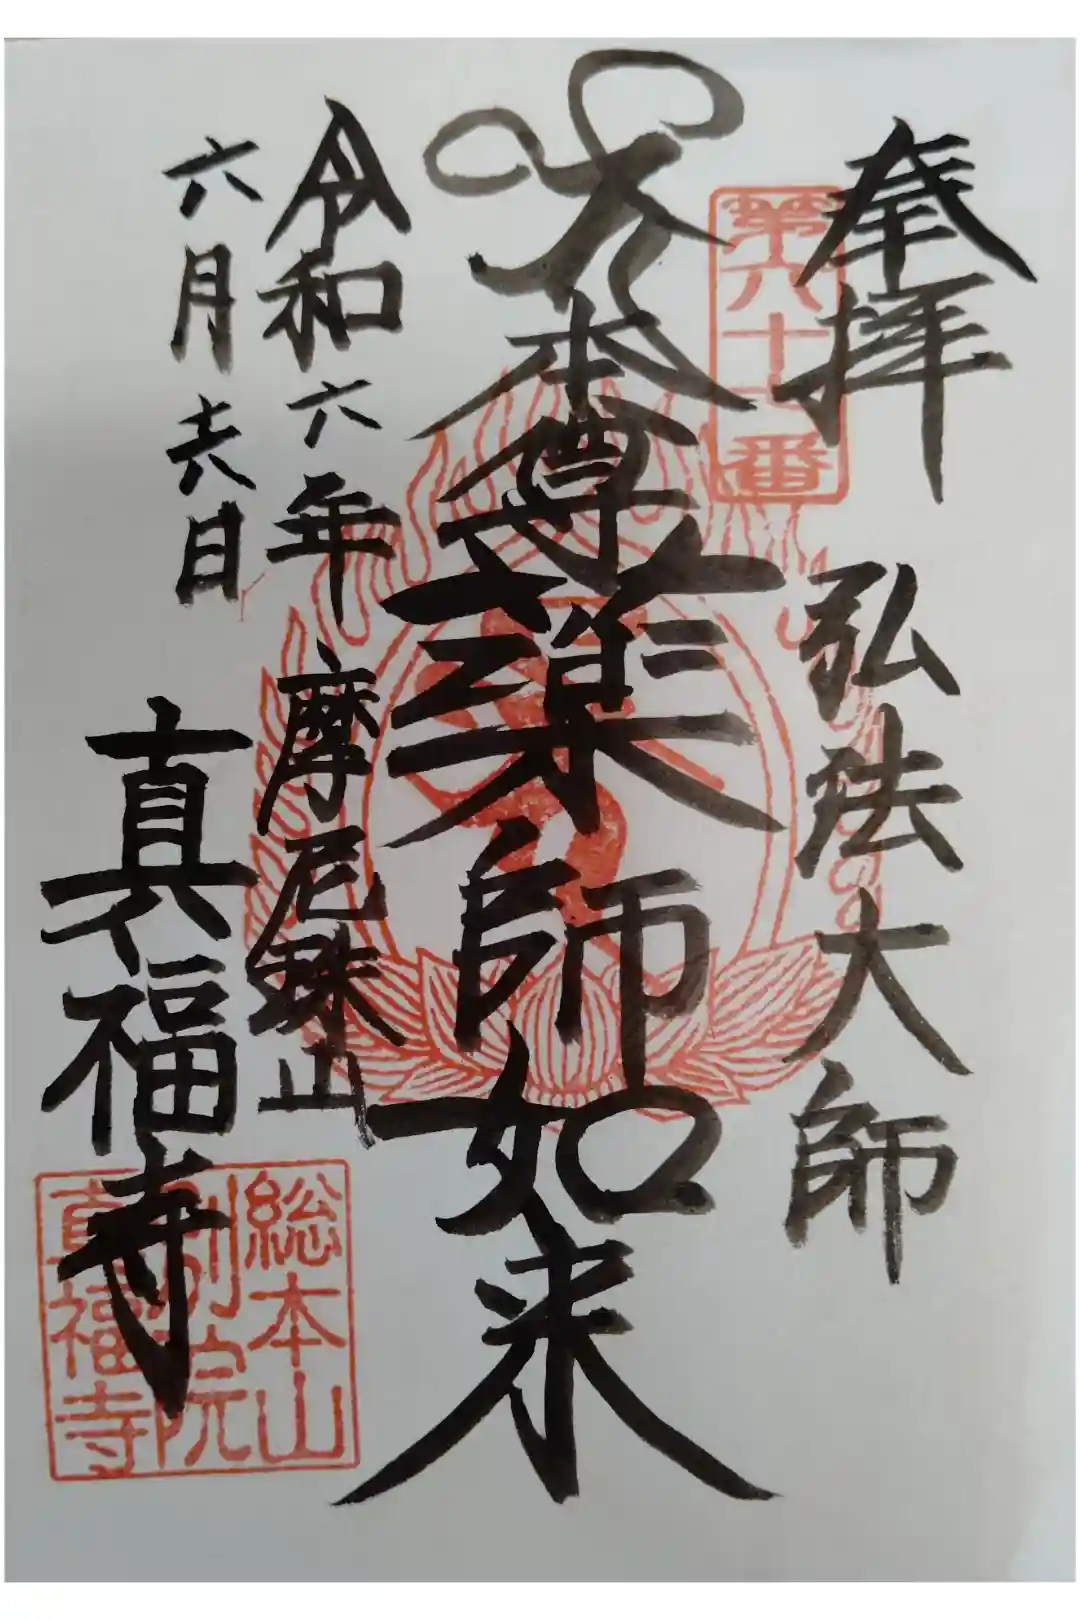 奉拝
弘法大師
第六十七番
本尊薬師如来
令和六年
六月六日
摩尼珠山
真福寺
総本山
別院
真福寺